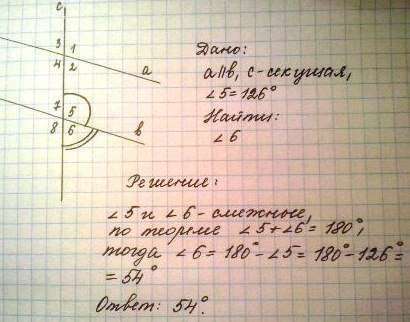 c
3 1
4 2
a
7 5
8 6
b
Дано:
a∥b, c-секущая,
∠5=126°
Найти:
∠6
Решение:
∠5 и ∠6 - смежные,
по теореме ∠5+∠6=180°,
тогда ∠6=180°-∠5=180°-126°=
=54°
Ответ: 54°.